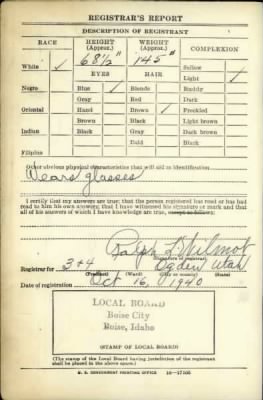 REGISTRAR'S REPORT
DESCRIPTION OF REGISTRANT
RACE HEIGHT (Approx.) WEIGHT (Approx.) COMPLEXION
68½" 145#
White ✓ Sallow
EYES HAIR Light ✓
Negro Blue ✓ Blonde Ruddy
Gray Red Dark
Oriental Hazel Brown ✓ Freckled
Brown Black Light brown
Indian Black Gray Dark brown
Bald Black
Filipino
Other obvious physical characteristics that will aid in identification
Wears glasses
I certify that my answers are true; that the person registered has read or has had
read to him his own answers; that I have witnessed his signature or mark and that
all of his answers of which I have knowledge are true, except as follows:
Ralph L. Wilmot
(Signature of registrar)
Registrar for 3+4 Ogden Utah
(Precinct) (Ward) (City or county) (State)
Date of registration Oct 16, 1940
LOCAL BOARD
Boise City
Boise, Idaho
(STAMP OF LOCAL BOARD)
(The stamp of the Local Board having jurisdiction of the registrant
shall be placed in the above space.)
U. S. GOVERNMENT PRINTING OFFICE 16—17105